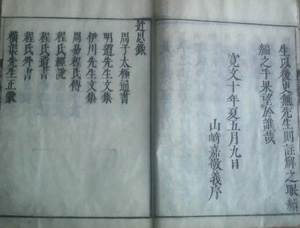 生以後更無先生則註解之眼藉
編之手果望於誰哉
寛文十年夏五月九日
山﨑嘉敬義序
近思錄
周子太極通書
明道先生文集
伊川先生文集
周易程氏傳
程氏經說
程氏遺書
程氏外書
橫渠先生正蒙